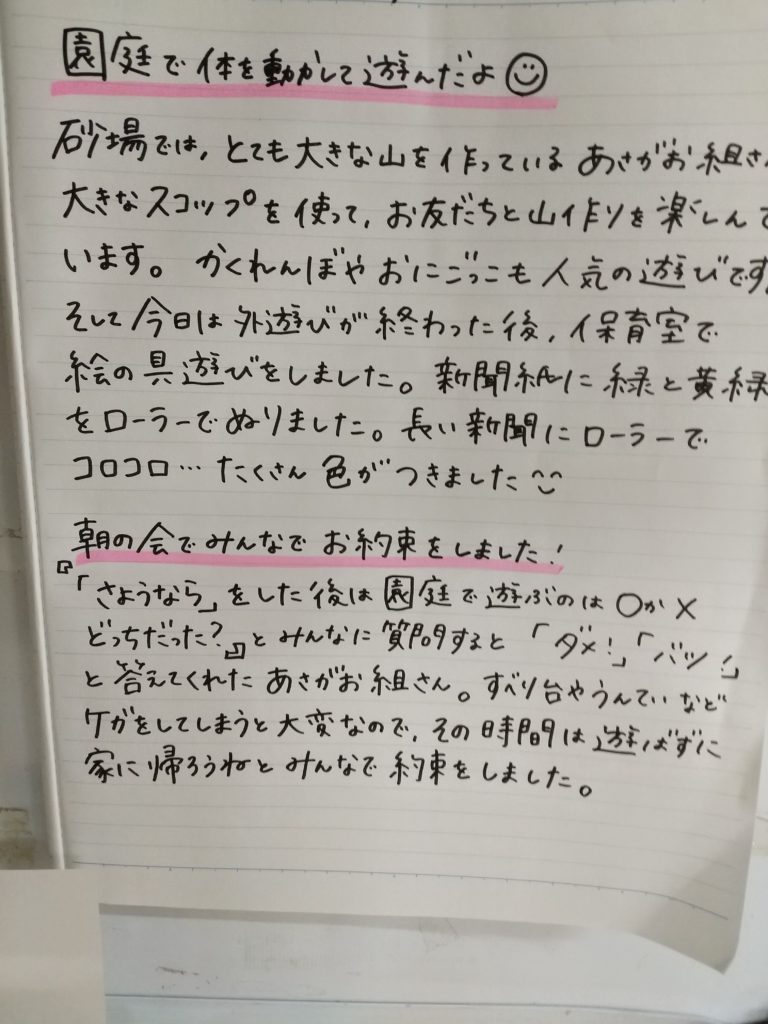 園庭で体を動かして遊んだよ☺
砂場では、とても大きな山を作っている あさがお組さ
大きなスコップを使って、お友だちと山作りを楽しんで
います。 かくれんぼや おにごっこも 人気の遊びです。
そして今日は 外遊びが 終わった後、保育室で
絵の具遊びをしました。新聞紙に 緑と黄緑
をローラーでぬりました。長い新聞にローラーで
コロコロ…たくさん 色がつきました
朝の会でみんなで お約束をしました!
『「さようなら」をした後は 園庭で遊ぶのは ○か×
どっちだった?』と みんなに 質問すると 「ダメ!」「バツ!」
と 答えてくれた あさがお組さん。すべり台やうんてい など
ケガをしてしまうと 大変なので、その時間は 遊ばずに
家に帰ろうねと みんなで 約束をしました。